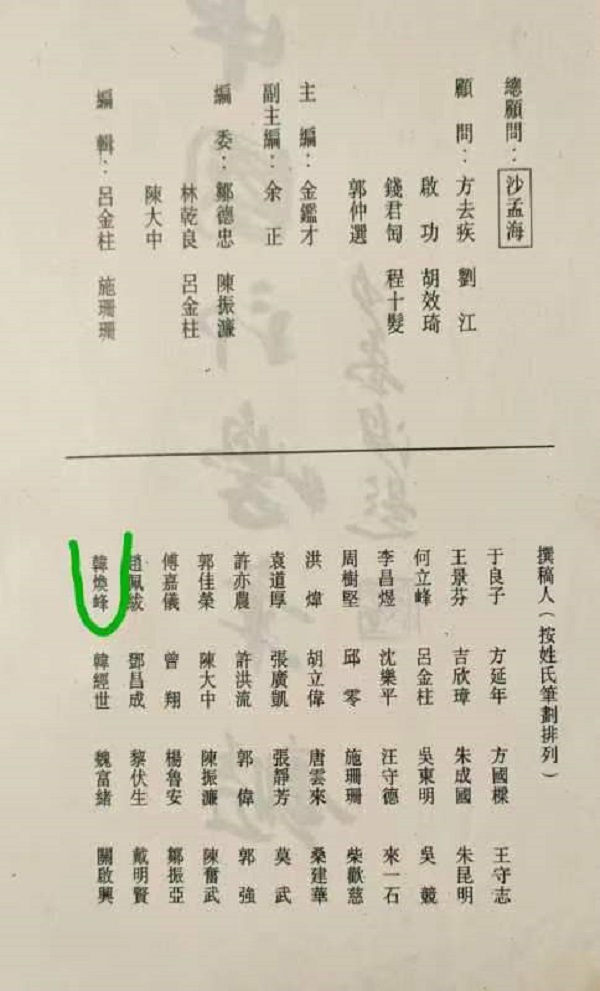 總顧問：沙孟海
顧　問：方去疾　劉　江
啟　功　胡效琦
錢君匋　程十髮
郭仲選
主　編：金鑑才
副主編：余　正
編　委：鄒德忠　陳振濂
林乾良　呂金柱
陳大中
編　輯：呂金柱　施珊珊
撰稿人（按姓氏筆劃排列）
于良子　方延年　方國樑　王守志
王景芬　吉欣璋　朱成國　朱昆明
何立峰　呂金柱　吳東明　吳　競
李昌煜　沈樂平　汪守德　來一石
周樹堅　邱　零　施珊珊　柴歡慈
洪　煒　胡立偉　唐雲來　桑建華
袁道厚　張廣凱　張靜芳　莫　武
許亦農　許洪流　郭　偉　郭　強
郭佳榮　陳大中　陳振濂　陳奮武
傅嘉儀　曾　翔　楊魯安　鄒振亞
鄧昌成　黎伏生　戴明賢
韓煥峰　韓經世　魏富緒　關啟興